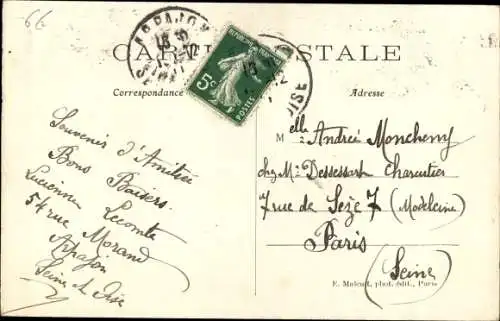 66
ARPAJON
CARTE POSTALE
5c
POSTES
OISE
Correspondance
Adresse
Souvenir d'Amitiée
Bons Baisers.
Lucienne Lecomte
54 rue Morand
Arpajon
Seine et Oise
Melle Andrée Moncheny
chez Mr Dessessart Charcutier
7 rue de Sèze 7 (Madeleine)
Paris
(Seine)
phot. édit., Paris